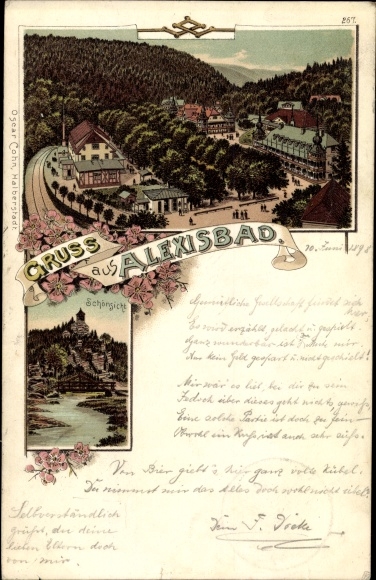 257.
Oscar Cohn, Halberstadt.
GRUSS
aus ALEXISBAD.
10. Juni 1898
Schönsicht
Gemütliche Gesellschaft findet sich
hier,
Es wird erzählt, gelacht u. gespielt.
Ganz wunderbar ist mir.
Kein Geld gespart u. nicht
Mir wär es lieb, bei dir zu sein
Jedoch über dieses geht nichts,
Eine solche Partie ist doch zu fein
Obwohl ein Kuss ist auch sehr süss.
Von Bier giebt's hier ganz volle Kübel.
Du nimmst mir das Alles doch wohl nicht übel?
Selbverständlich
grüßt, du deine
lieben Eltern doch
von mir.
Dein F.